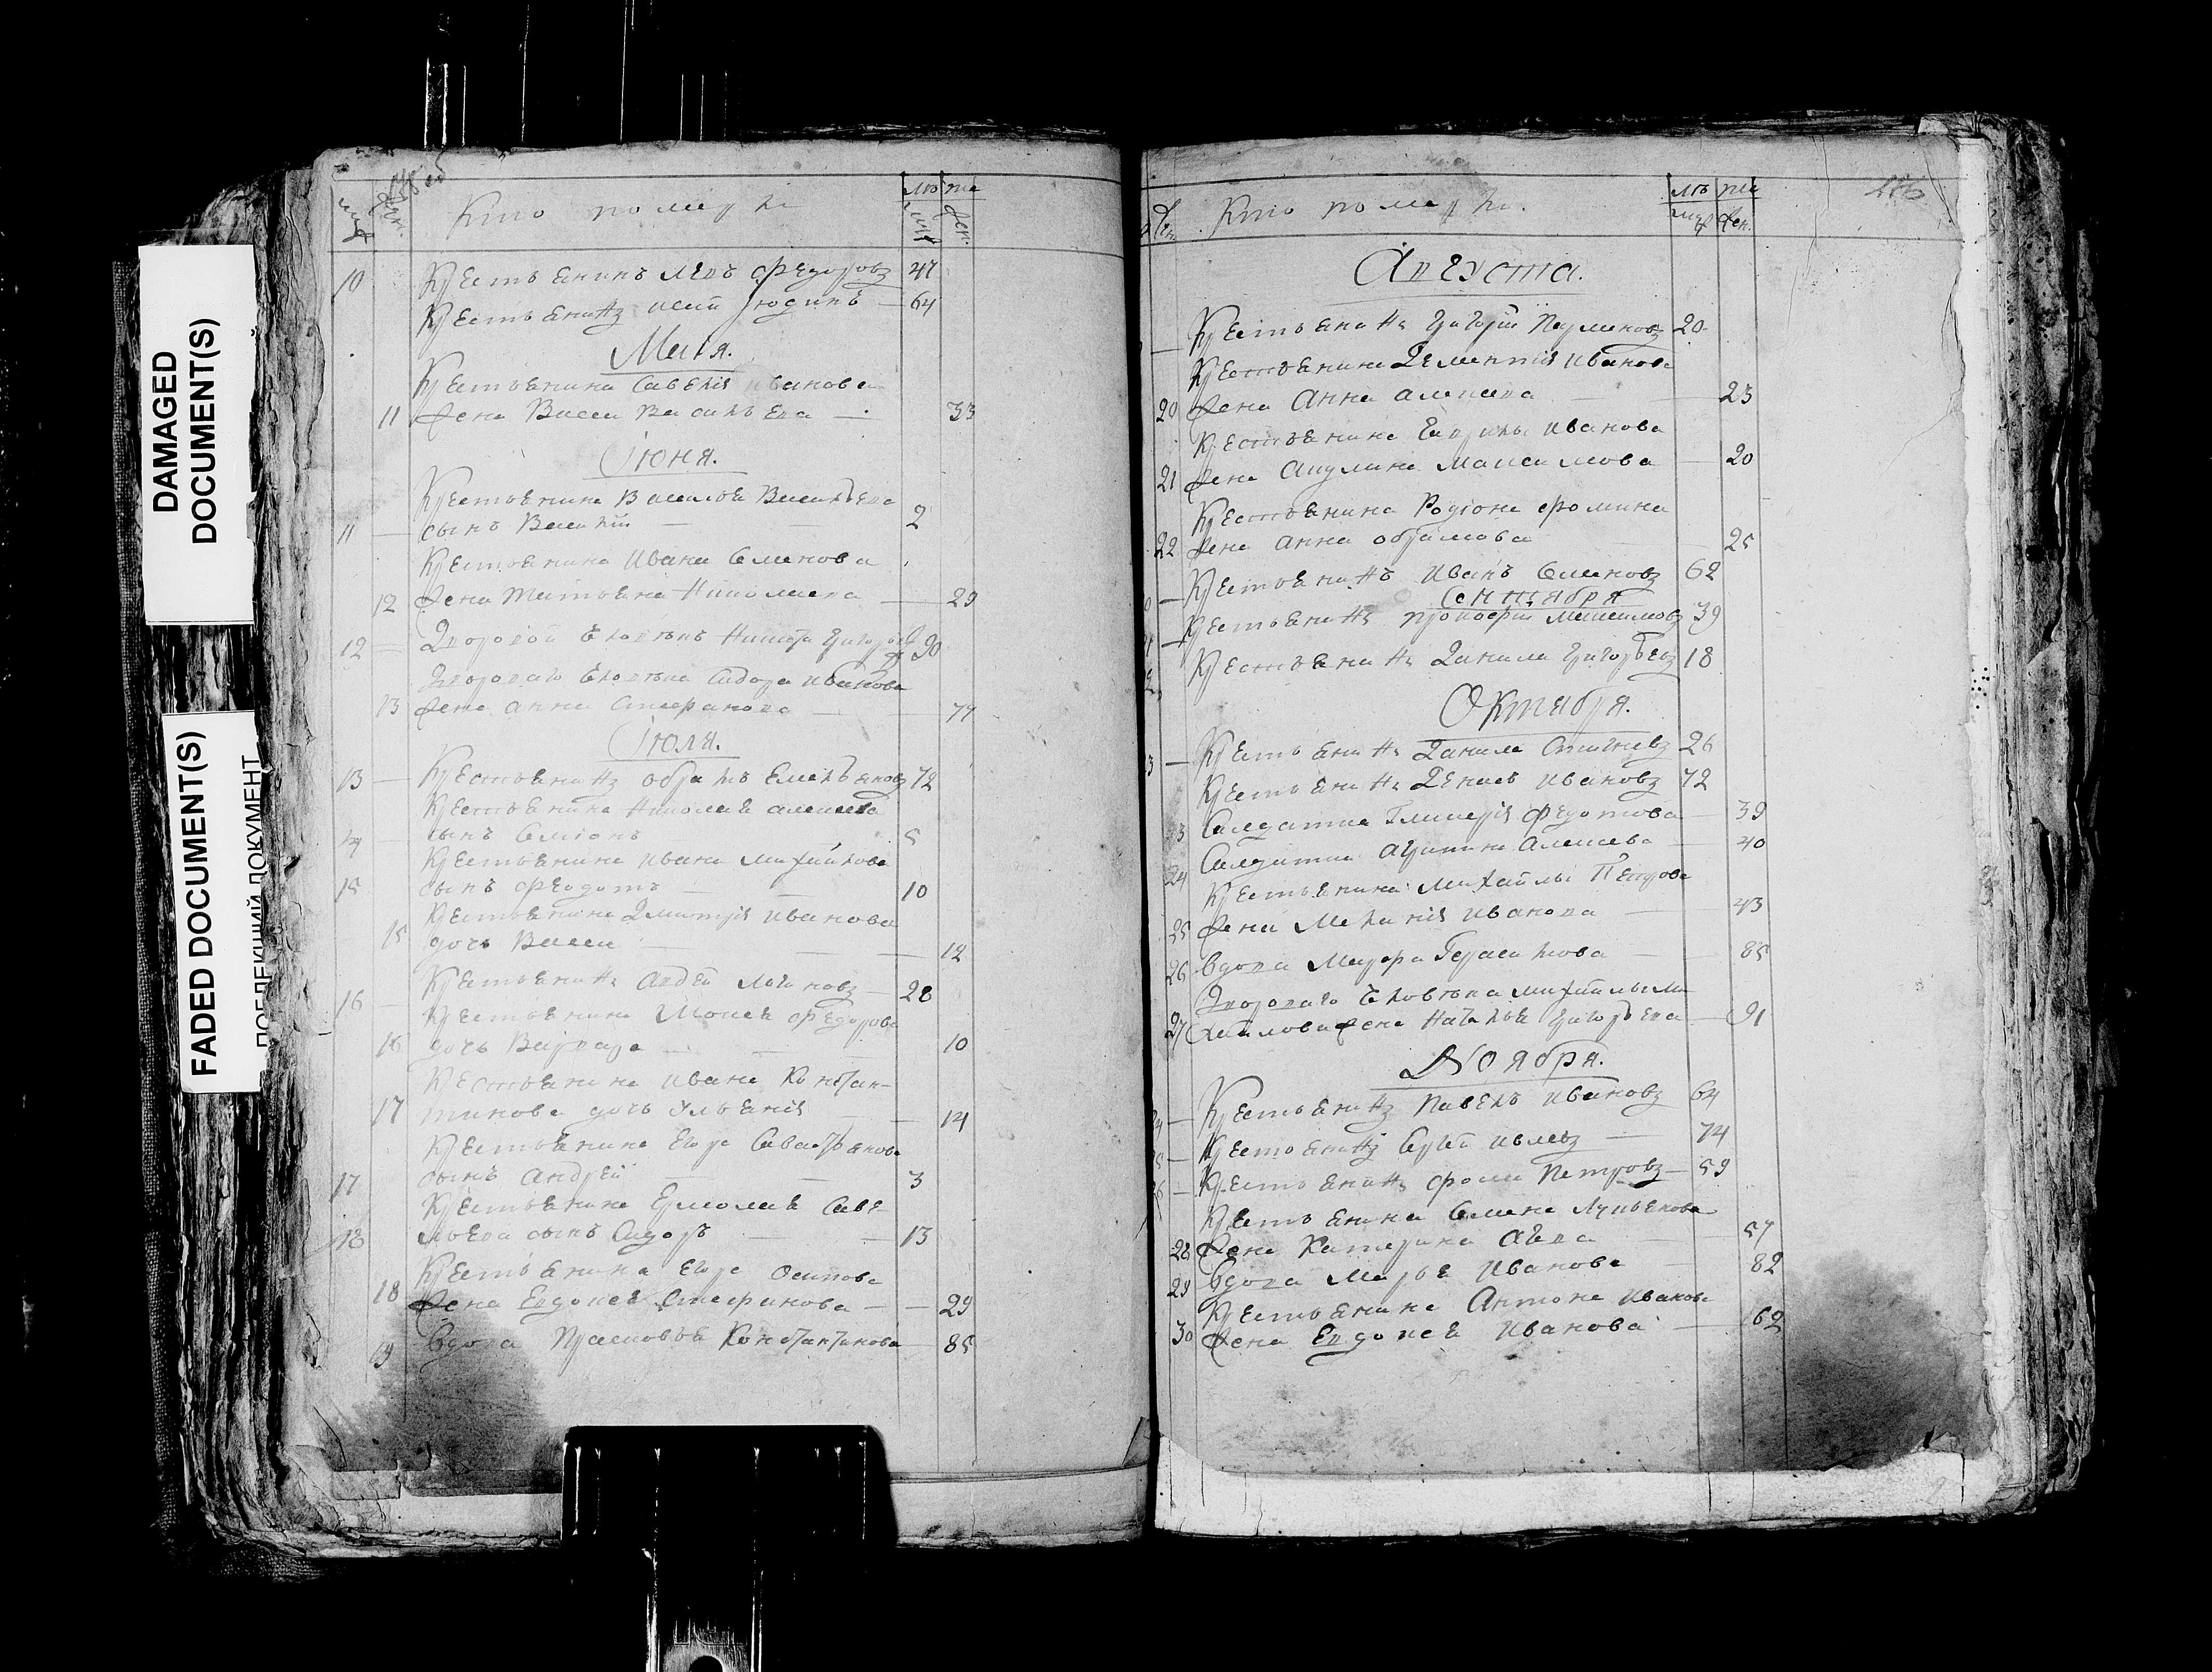 DAMAGED
DOCUMENT(S)
FADED DOCUMENT(S)
Кто померли
лѣ та
муж жен.
10 Крестьянинъ Левъ Федоровъ 47
Крестьянинъ Юдинъ 64
Маия.
Крестьянина Савелия Иванова
11 жена Васса Васильева 33
Июня.
Крестьянина Василья Васильева
11 сынъ Василий 2
Крестьянина Ивана Семенова
12 жена Татьяна Николаева 29
12 Дворовой человѣкъ Никита Григорьевъ 90
Дворового человѣка Сидора Иванова
13 жена Анна Стефанова 77
Июля.
13 Крестьянинъ Емельяновъ 72
Крестьянина Николая Алексеева
14 сынъ Семионъ 5
Крестьянина Ивана Михайлова
15 сынъ Феодотъ 10
Крестьянина Дмитрия Иванова
15 дочь Васса 12
16 Крестьянинъ Авдей Логиновъ 28
Крестьянина Моисея Федорова
16 дочь Варвара 10
Крестьянина Ивана Констан-
17 тинова дочь Ульяния 14
Крестьянина Егора Савастьянова
17 сынъ Андрей 3
Крестьянина Ермолая Саве-
18 льева сынъ Сидоръ 13
Крестьянина Егора Осипова
18 жена Евдокея Стефанова 29
19 Вдова Прасковья Константинова 85
Кто померли.
лѣ та
муж жен.
Августа.
Крестьянинъ Григорий 20
Крестьянина Дементия Иванова
20 жена Анна Алексеева 23
Крестьянина Гаврилы Иванова
21 жена Акулина Максимова 20
Крестьянина Родиона Фомина
22 жена Анна Обрамова 25
Крестьянинъ Иванъ Семеновъ 62
Сентября
Крестьянинъ Прокофий Максимовъ 39
Крестьянинъ Данила Григорьевъ 18
Октября.
Крестьянинъ Данила 26
Крестьянинъ Денисъ Ивановъ 72
Салдатка Гликерия Федотова 39
24 Салдатка Агрипина Алексеева 40
Крестьянина Михайлы Петрова
25 жена Мелания Иванова 43
26 Вдова Мавра Герасимова 85
Дворового человѣка Михайлы Ми-
27 хайлова жена Наталья Григорьева 91
Ноября.
Крестьянинъ Павелъ Ивановъ 64
Крестьянинъ Сергей 74
Крестьянинъ Фома Петровъ 59
Крестьянина Семена Лукьянова
28 жена Катерина 57
29 Вдова Марья Иванова 82
Крестьянина Антона Иванова
30 жена Евдокея Иванова 62